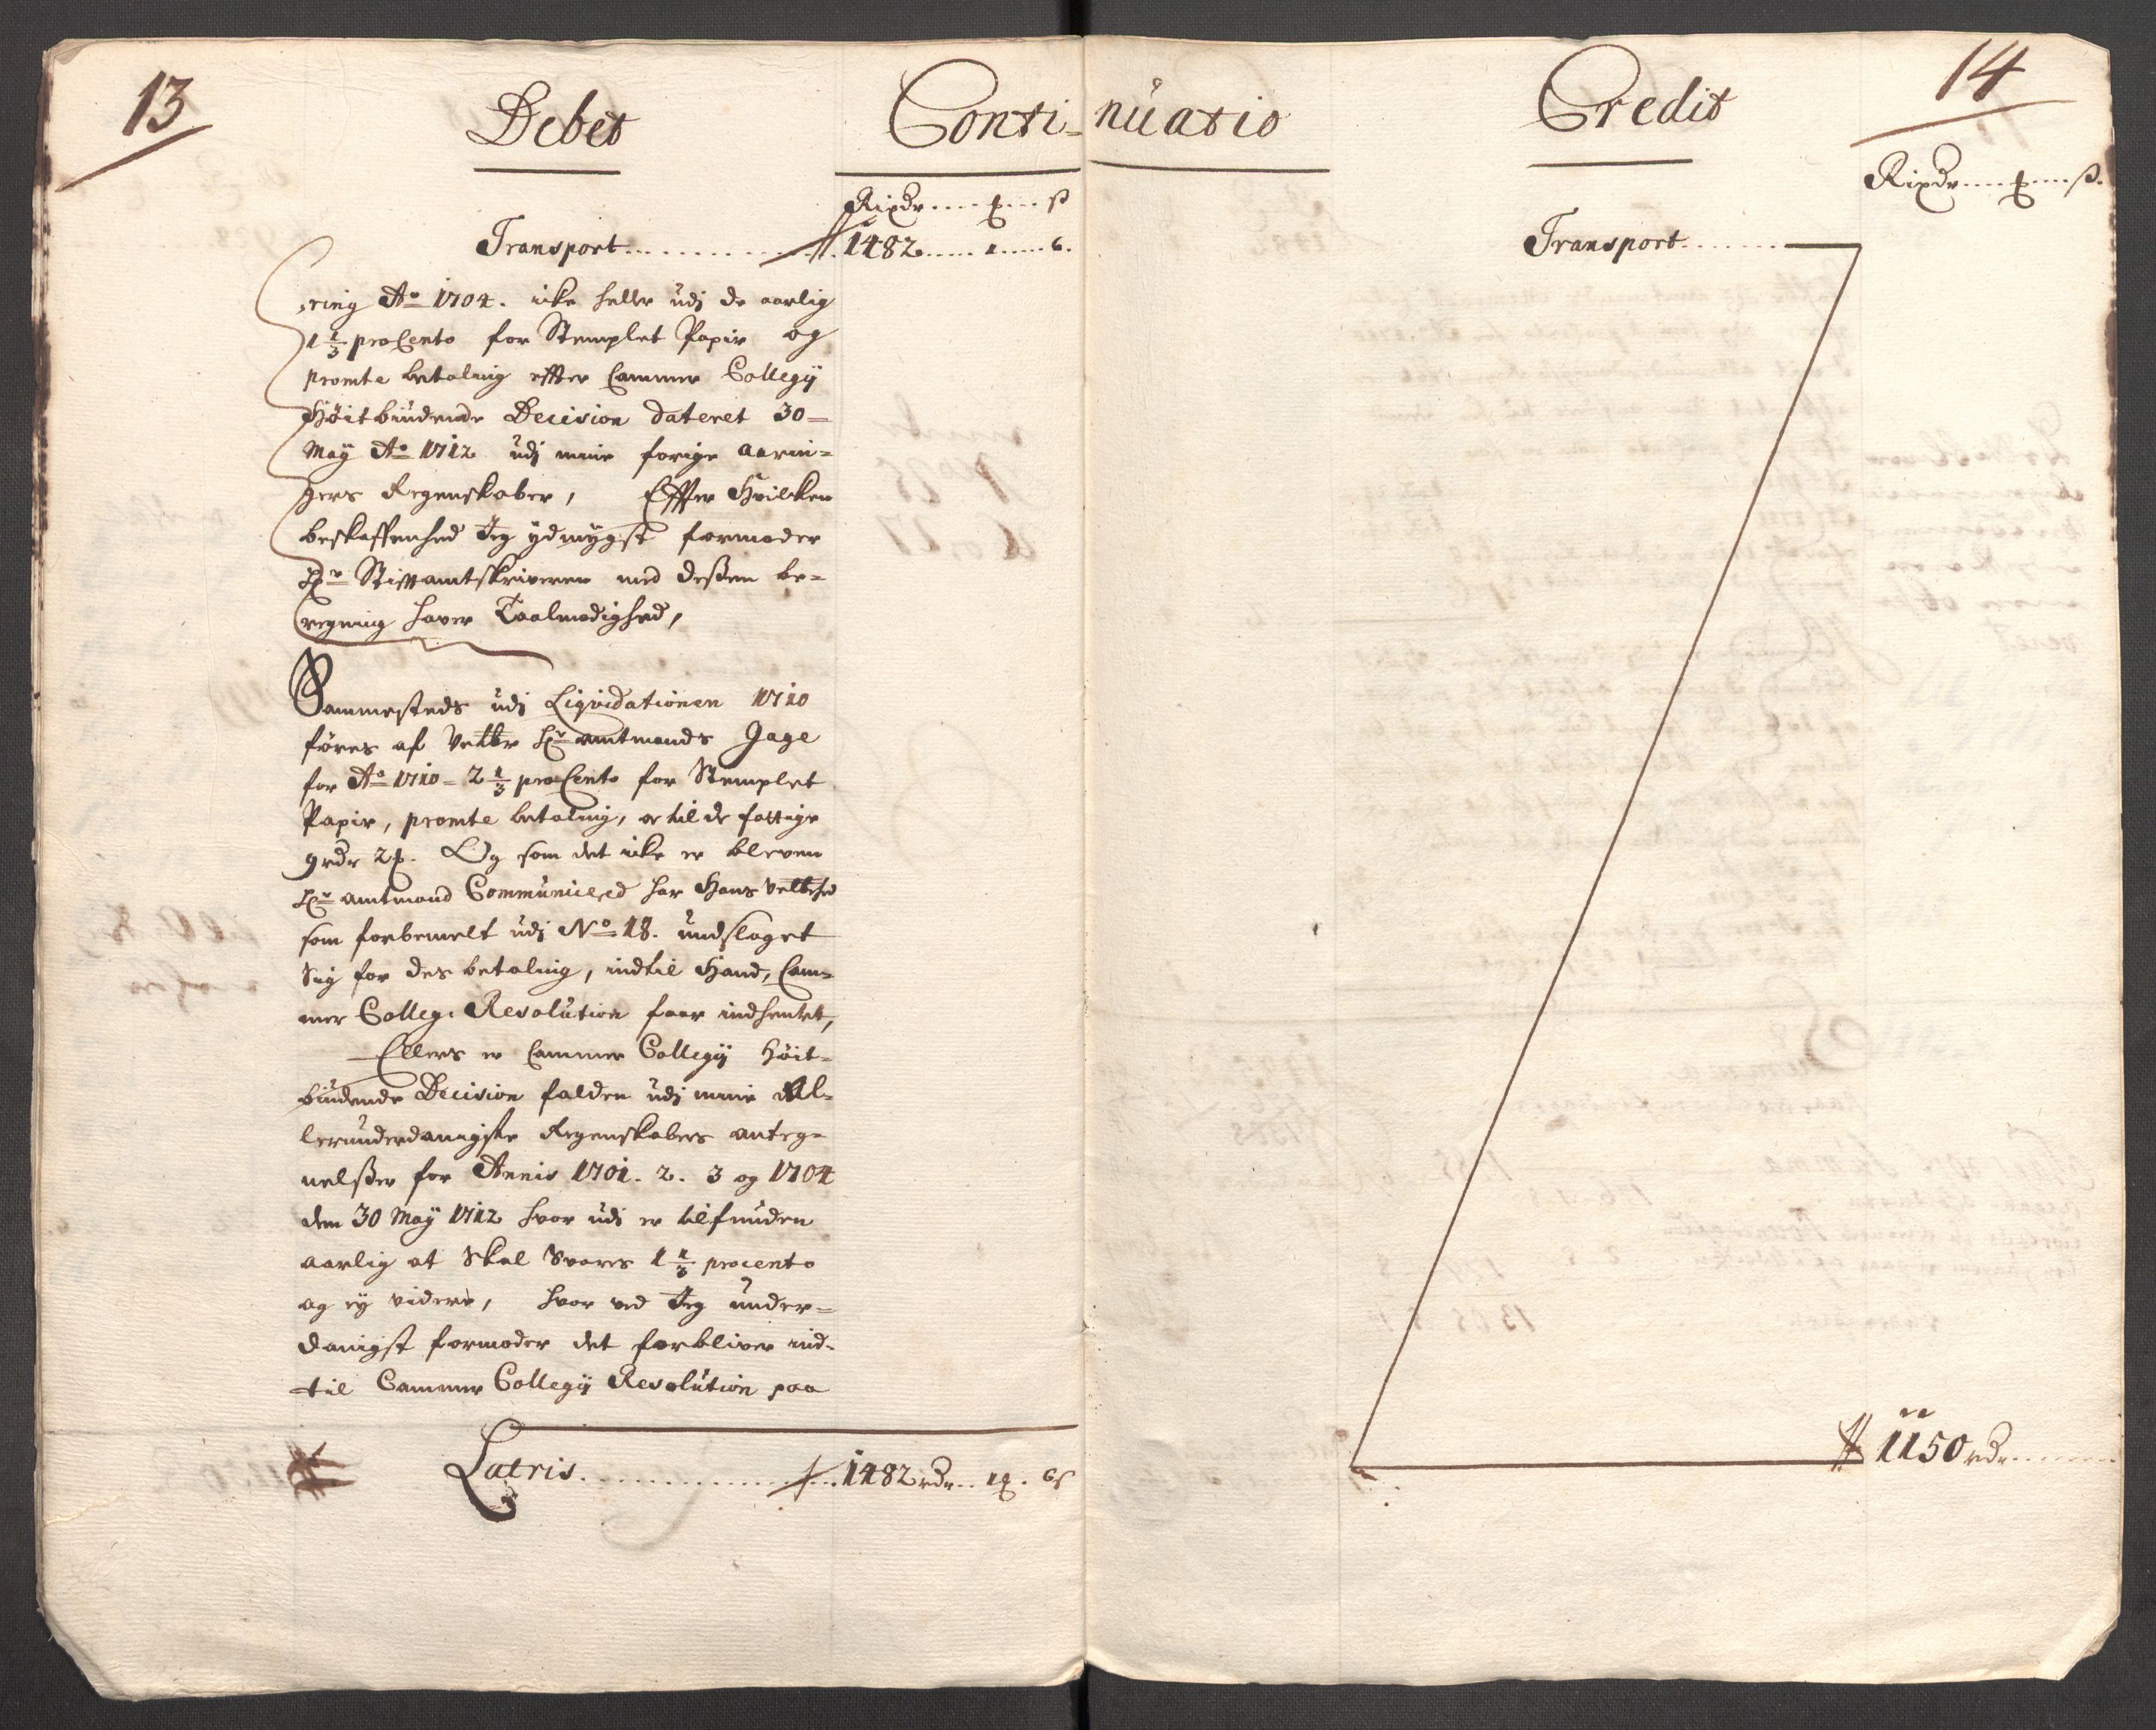 13
Debet
Conti-
Rixdr....ȹ....ß
Transport............1482......1.....6.
ring Ao 1704. icke heller udj de aarlig
1 1/3 proCento for Stemplet Papir og
promte betaling effter Cammer Collegij
Høitbiudende Decision dateret 30-
Maÿ Ao 1712 udj mine forige aarin-
gers Regenskaber, Effter Hvilken
beskaffenhed Jeg ydmygst formoder
Hr Stifftamtskriveren med dessen be-
regning haver Taalmodighed,
Sammesteds udj Liqvidationen 1710
føres af Velbr Hr amtmands Gage
for Ao 1710 - 2 1/3 proCento for Stemplet
Papir, promte betaling, oc til de fattige
9 rdr 2ȹ. Og som det icke er bleven
Hr amtmand Communicered har Hans Velbhed
som forbemelt udj No 18. undslaget
Sig for des betaling, indtil Hand, Cam-
mer Colleg: Resolution faar indhentet,
Ellers er Cammer Collegij høit-
biudende Decision falden udj mine Al-
lerunderdanigste Regenskabers anteg-
nelsser for Annis 1701. 2. 3 og 1704
den 30 Maÿ 1712 hvor udj er tilfunden
aarlig at Skal Svares 1 1/3 procento
og eÿ videre, hvor ved Jeg under-
danigst formoder det forbliver ind-
til Cammer Collegij Resolution paa
Latris................1482 rdr.. 1ȹ. 6ß
14
nuatio
Credit
Rixdr....ȹ....ß.
Transport.......
1150 rdr........